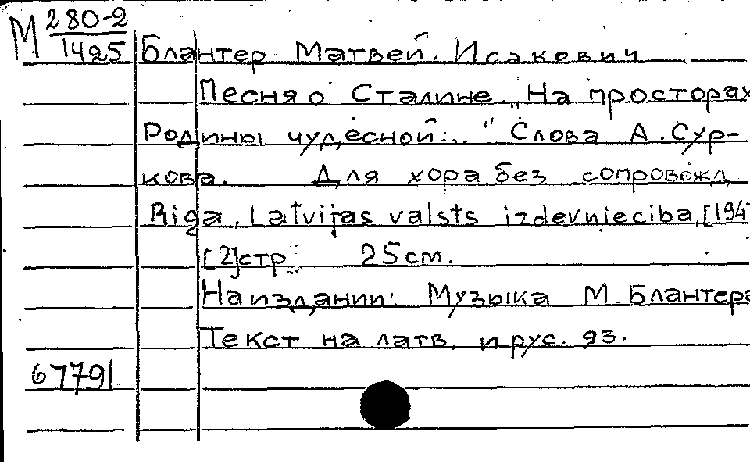 М 280-2
1425 Блантер Матвей Исакевич
Песня о Сталине „На просторах
Родины чудесной..." Слова А. Сур-
кова. Для хора без сопровожд
Riga, Latvijas valsts izdevnieciba, [194
[2]стр. 25см.
На издании: Музыка М. Блантера
Текст на латв. и рус. яз.
67791